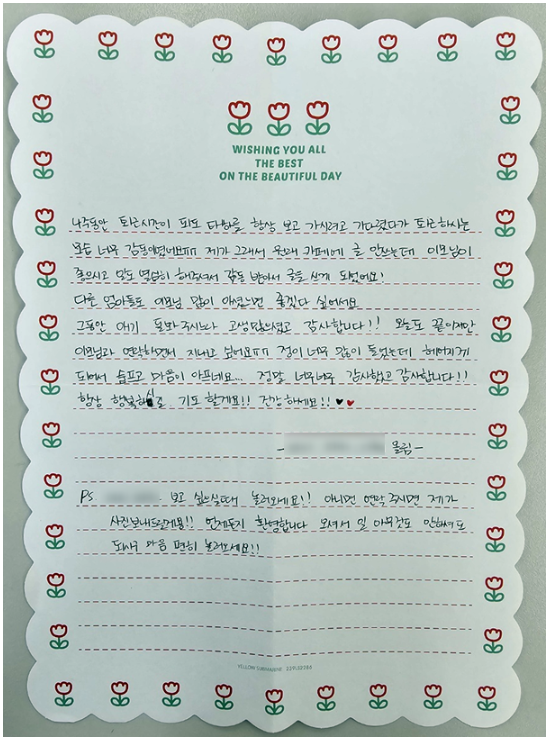 WISHING YOU ALL
THE BEST
ON THE BEAUTIFUL DAY
4주동안 퇴근시간이 되도 다희를 항상 보고 가시려고 기다렸다가 퇴근하시는
모습 너무 감동이였어요ㅠㅠ 제가 그래서 원래 카페에 글 안쓰는데 이모님이
좋으시고 모든 열심히 해주셔서 감동 받아서 글을 쓰게 되었어요!
다른 엄마들도 이모님 많이 아셨으면 좋겠다 싶어서요
그동안 애기 돌봐주시느라 고생많으셨고 감사합니다!! 오늘도 끝이지만
이모님과 연락하면서 지내고 싶어요ㅠㅠ 정이 너무 많이 들었는데 헤어지게
되어서 슬프고 마음이 아프네요... 정말 너무너무 감사했고 감사합니다!!
항상 행복하실로 기도 할게요!! 건강하세요!! ♥♥
- 올림-
PS 보고 싶으실때 놀러오세요!! 아니면 연락주시면 제가
사진보내드릴게용!! 언제든지 환영합니다 오셔서 일 아무것도 안하셔도
되시구 마음 편히 놀러오세요!!